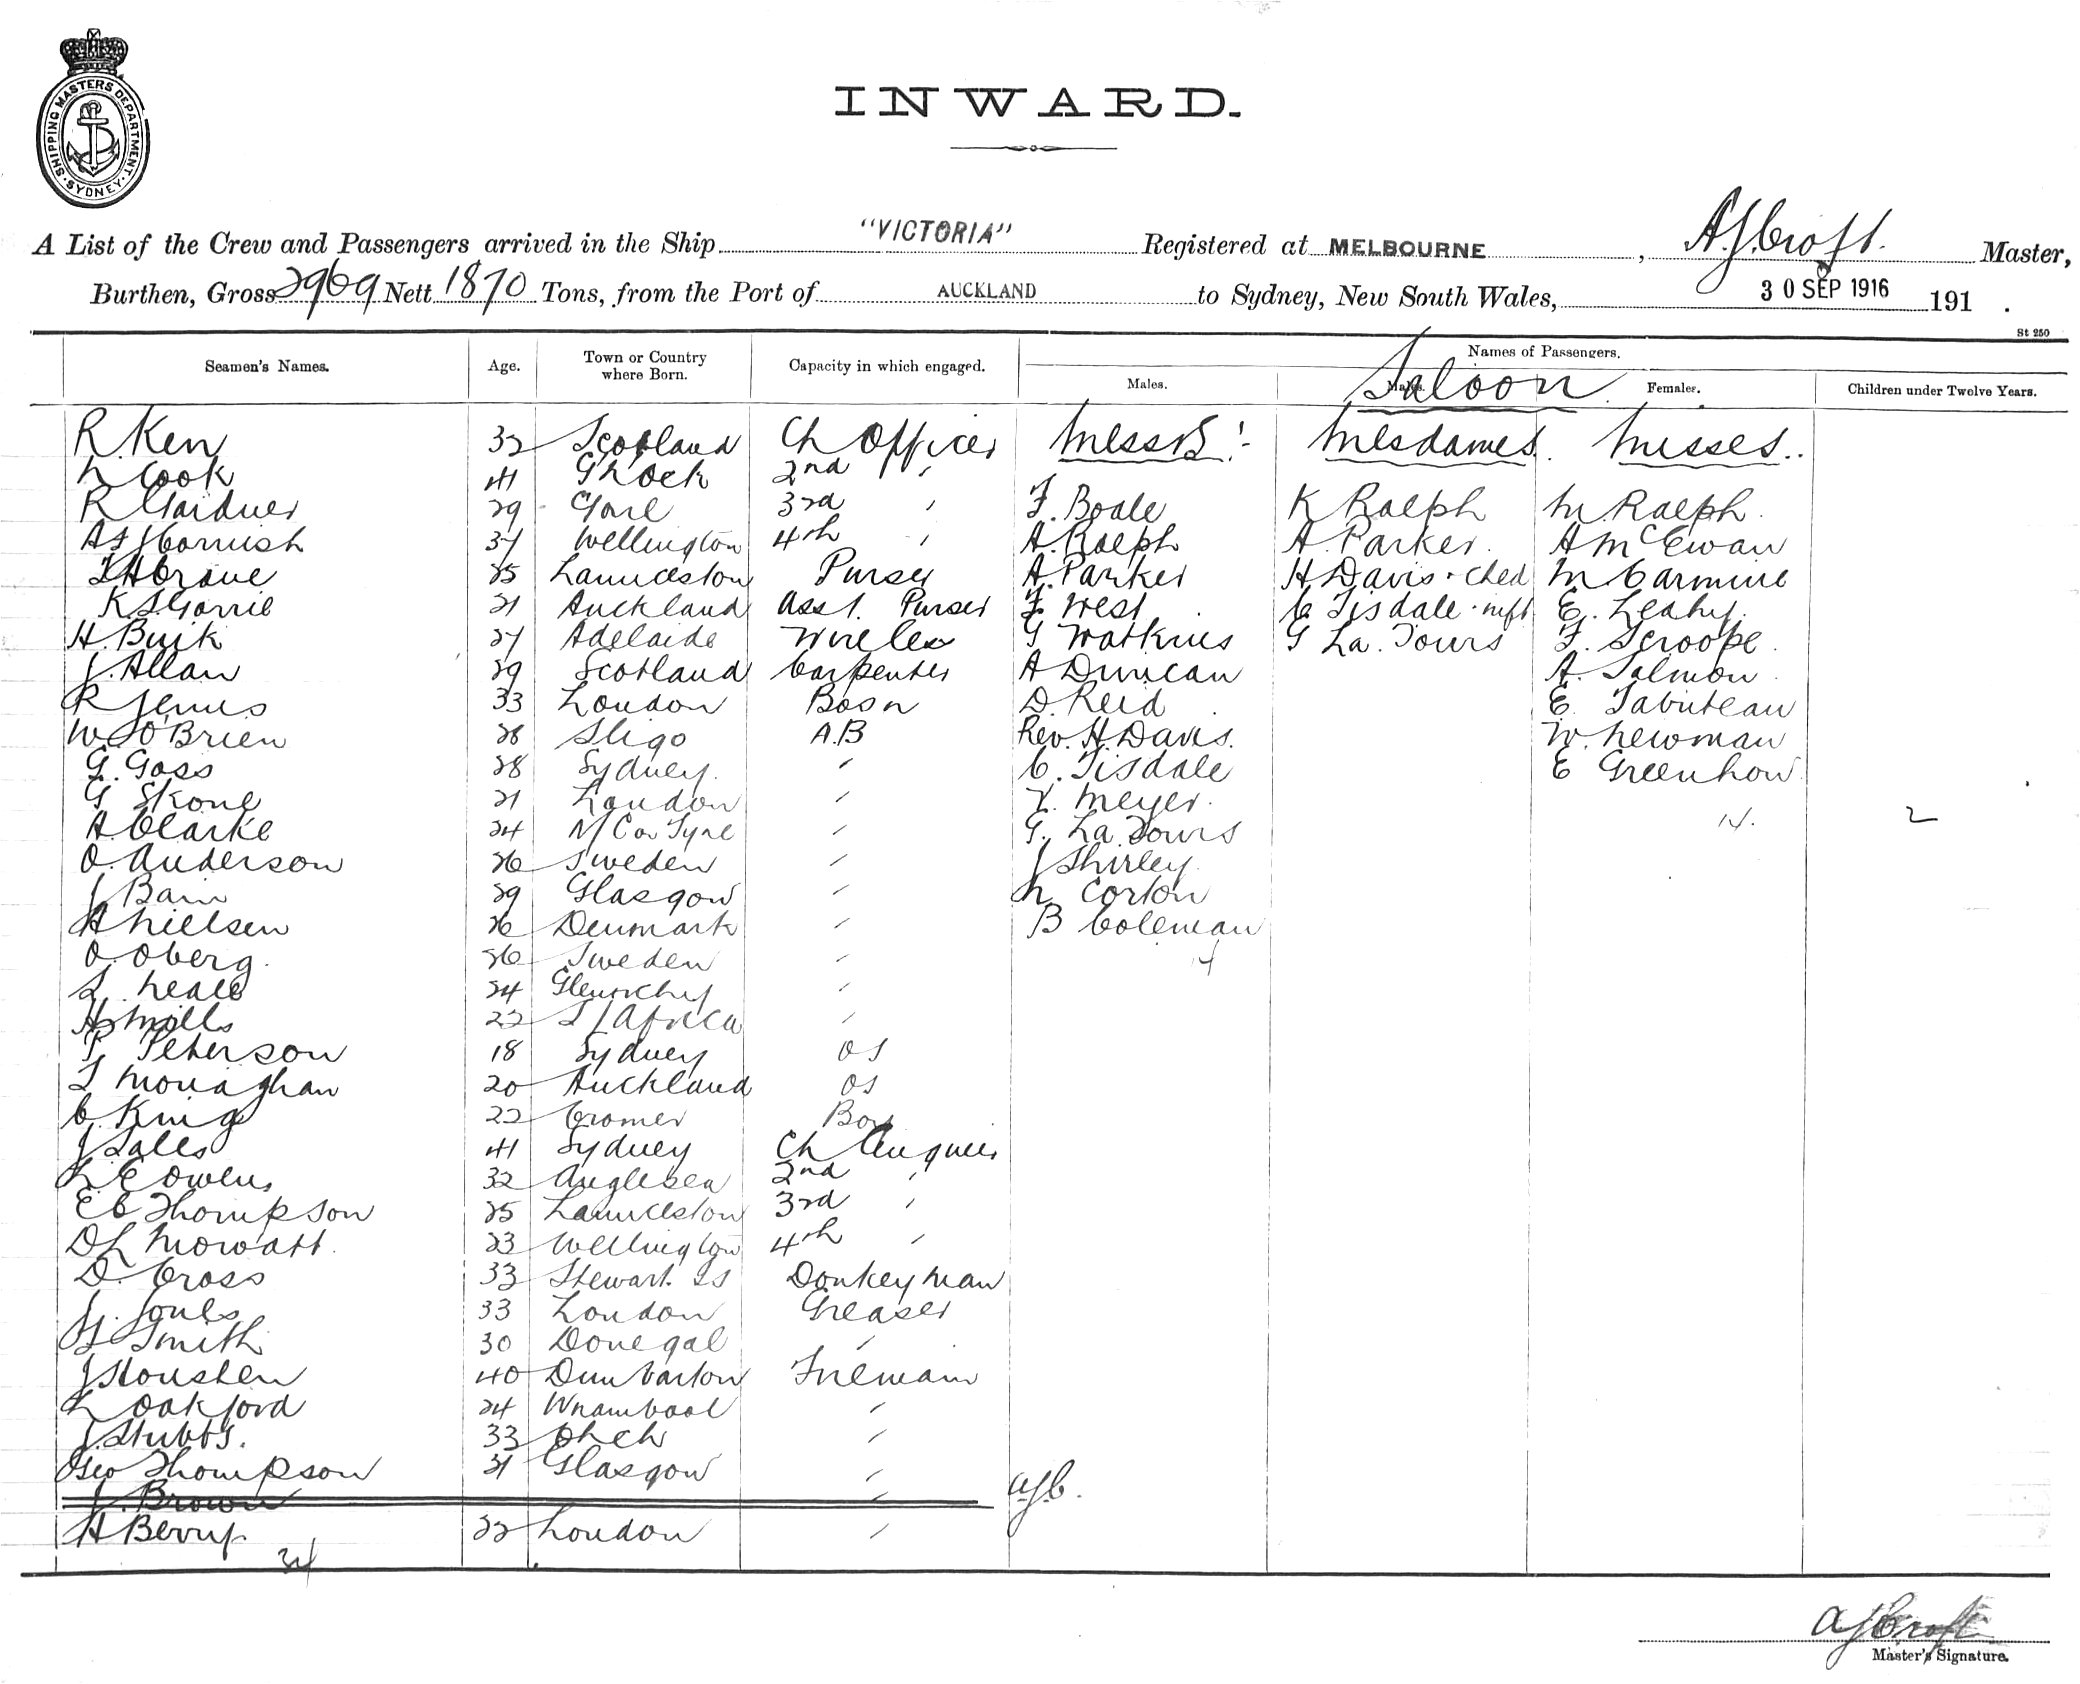 SHIPPING MASTERS DEPARTMENT. SYDNEY
INWARD.
A List of the Crew and Passengers arrived in the Ship "VICTORIA" Registered at MELBOURNE, A.J. Croft. Master,
Burthen, Gross 2969 Nett 1870 Tons, from the Port of AUCKLAND to Sydney, New South Wales, 30 SEP 1916 191 .
St 250
Seamen's Names. Age. Town or Country where Born. Capacity in which engaged. Names of Passengers.
Males. Saloon Females. Children under Twelve Years.
R. Ken 32 Scotland Ch Officer Messrs:- Mesdames. Misses..
N Cook 41 G'Lock 2nd "
R Gardner 29 3rd " F. Boale K Ralph M. Ralph.
AJ Cornish 37 Wellington 4th " A. Ralph A. Parker. A McEwan
Crave 25 Launceston Purser A. Parker H. Davis · Ched M Carmine
K S Gorrie 21 Auckland Asst. Purser F West C Tisdale · inft E. Leahy.
H. Buik 27 Adelaide Wireless G Watkins G La. Tours F. Scroope.
J. Allan 29 Scotland Carpenter A Duncan A. Salmon.
R Jenus 33 London Bosn D. Reid E. Tabuteau
W. O'Brien 28 Sligo A.B Rev. H. Davis. W. Newman
G. Goss 28 Sydney. " C. Tisdale E Greenhow
G Skone 21 London " Meyer.
A. Clarke 24 N/C on Tyne " G. La Tours 14. 2
O. Anderson 26 Sweden " J Shirley.
J Bain 29 Glasgow " N Corton
A Nielsen 26 Denmark " B Coleman
O. Oberg. 26 Sweden " 14
Neale 24 Glenorchy "
H Mills 22 S/Africa "
P. Peterson 18 Sydney OS
Monaghan 20 Auckland OS
C. King 22 Cromer Boy
J Sales 41 Sydney Ch Engineer
L E Owens 32 Anglesea 2nd "
E C Thompson 25 Launceston 3rd "
D L Mowatt. 23 Wellington 4th "
D. Cross 33 Stewart Is Donkeyman
J. Jones 33 London Greaser
Smith 30 Donegal "
J Houshen 40 Dumbarton Fireman
L Oakford 24 W'nambool "
J. Stubbs. 33 Chch "
Geo Thompson 31 Glasgow "
J. Brown " AJC.
H Berry 22 London "
34
AJ Croft
Master's Signature.